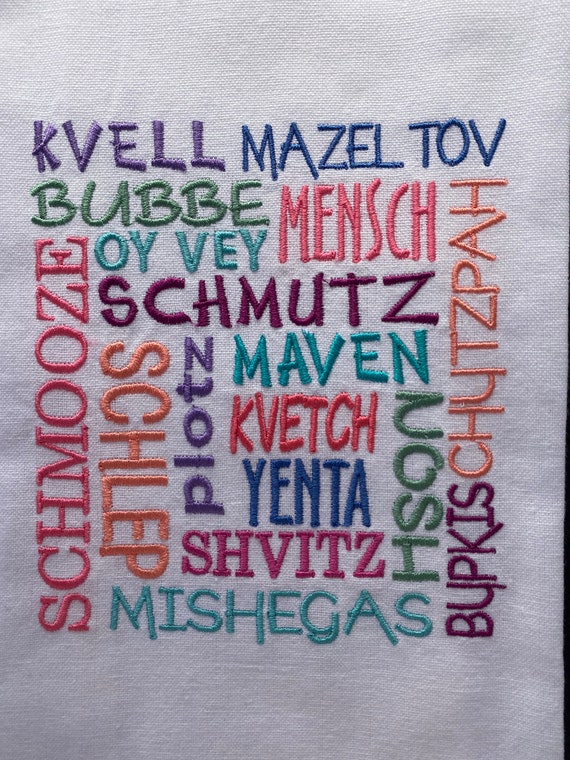 KVELL
MAZEL TOV
BUBBE
MENSCH
CHUTZPAH
OY VEY
SCHMOOZE
SCHMUTZ
SCHLEP
plotz
MAVEN
KVETCH
NOSH
YENTA
BUPKIS
SHVITZ
MISHEGAS